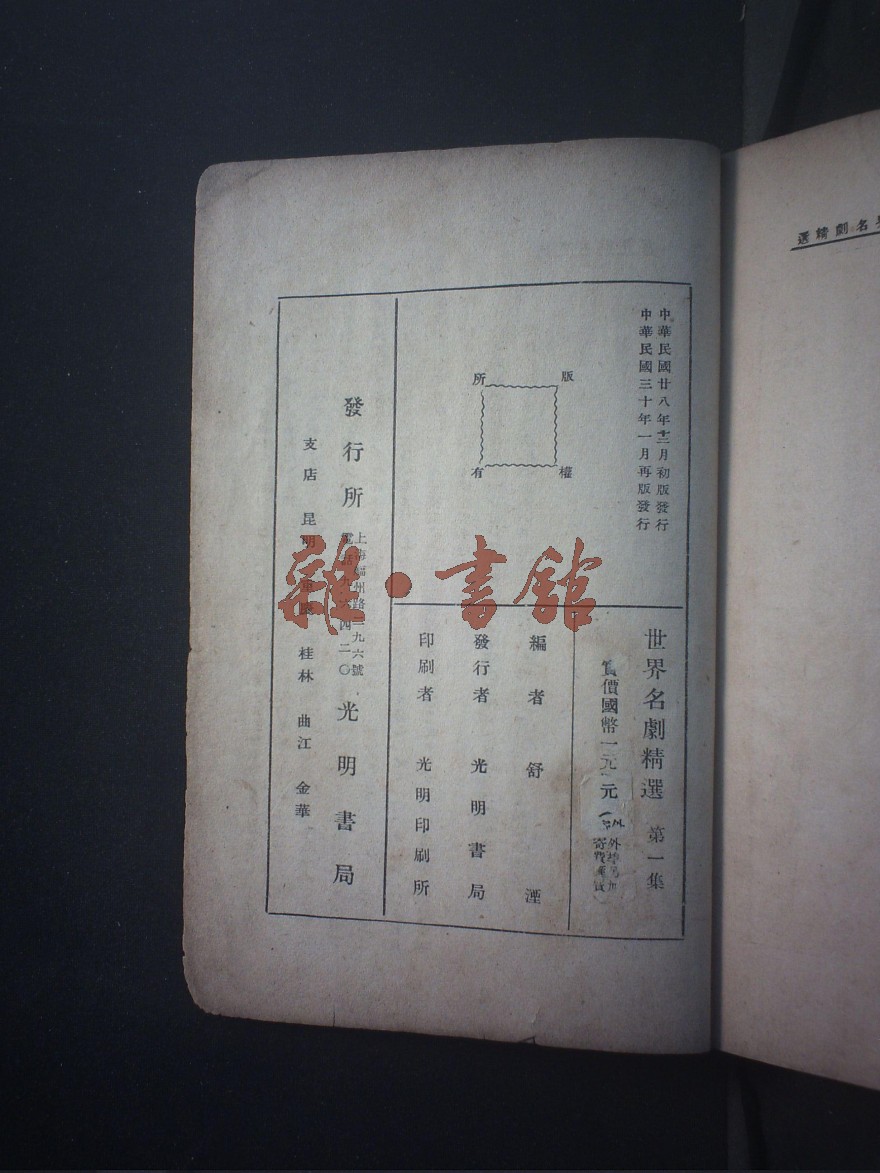 世界名劇精選
中華民國廿八年十二月初版發行
中華民國三十年一月再版發行
版權所有
世界名劇精選 第一集
價國幣一元 元
外埠
寄費
編者 舒湮
發行者 光明書局
印刷者 光明印刷所
發行所
上海福州路二九六號
四二〇
光明書局
支店 昆明 重慶 桂林 曲江 金華
雜·書館